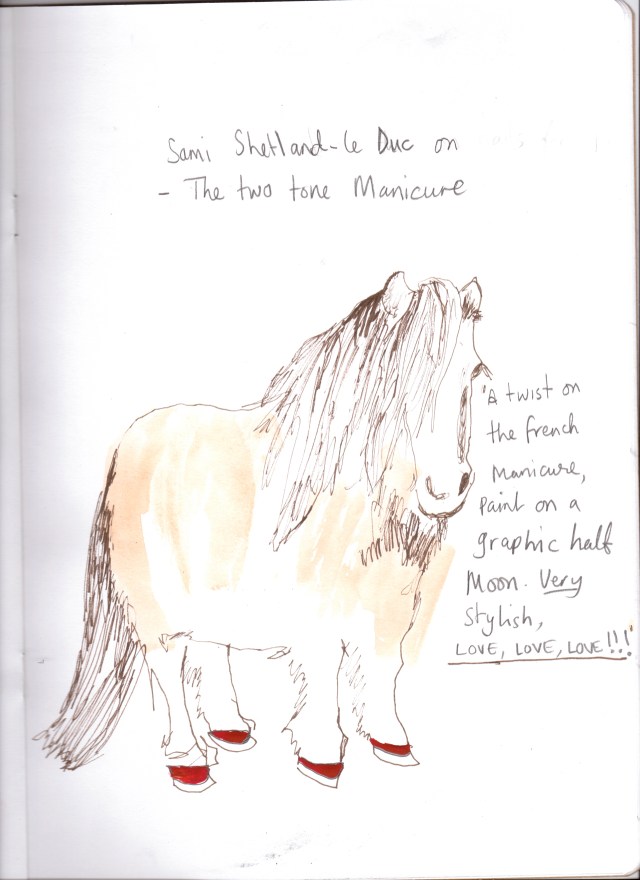 Sami Shetland-le Duc on
- The two tone Manicure
'A twist on
the french
Manicure,
Paint on a
graphic half
Moon. Very
Stylish,
LOVE, LOVE, LOVE!!!'